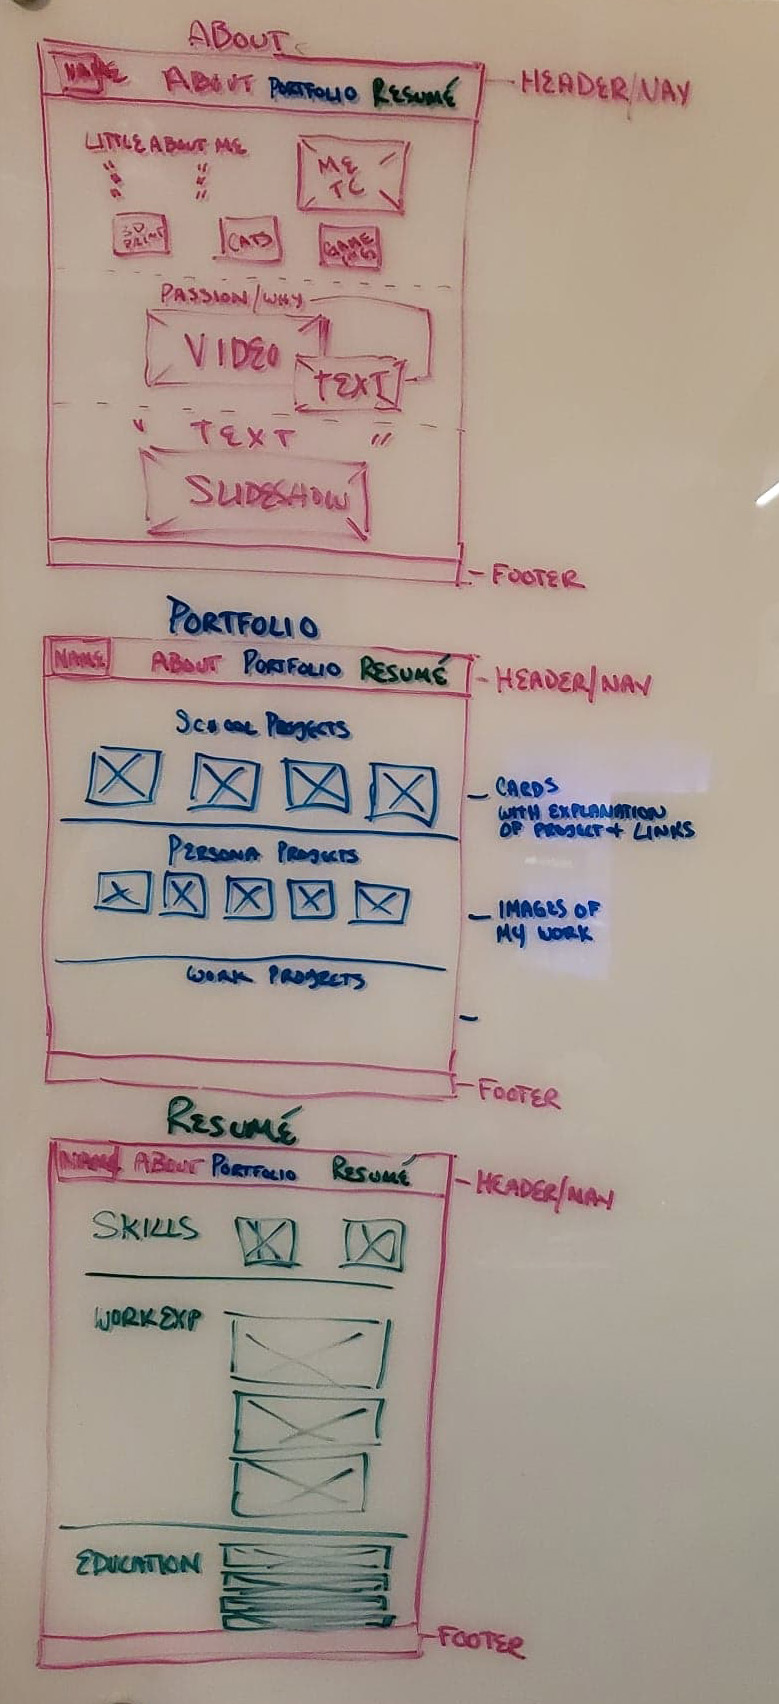 ABOUT
NAME ABOUT PORTFOLIO RESUMÉ
HEADER/NAV
LITTLE ABOUT ME
ME
TC
3D
PRINT
CATS
GAME
PASSION/WHY
VIDEO
TEXT
" TEXT "
SLIDESHOW
FOOTER
PORTFOLIO
NAME ABOUT PORTFOLIO RESUMÉ
HEADER/NAV
SCHOOL PROJECTS
CARDS
WITH EXPLANATION
OF PROJECT + LINKS
PERSONA PROJECTS
IMAGES OF
MY WORK
WORK PROJECTS
FOOTER
RESUMÉ
NAME ABOUT PORTFOLIO RESUMÉ
HEADER/NAV
SKILLS
WORK EXP
EDUCATION
FOOTER